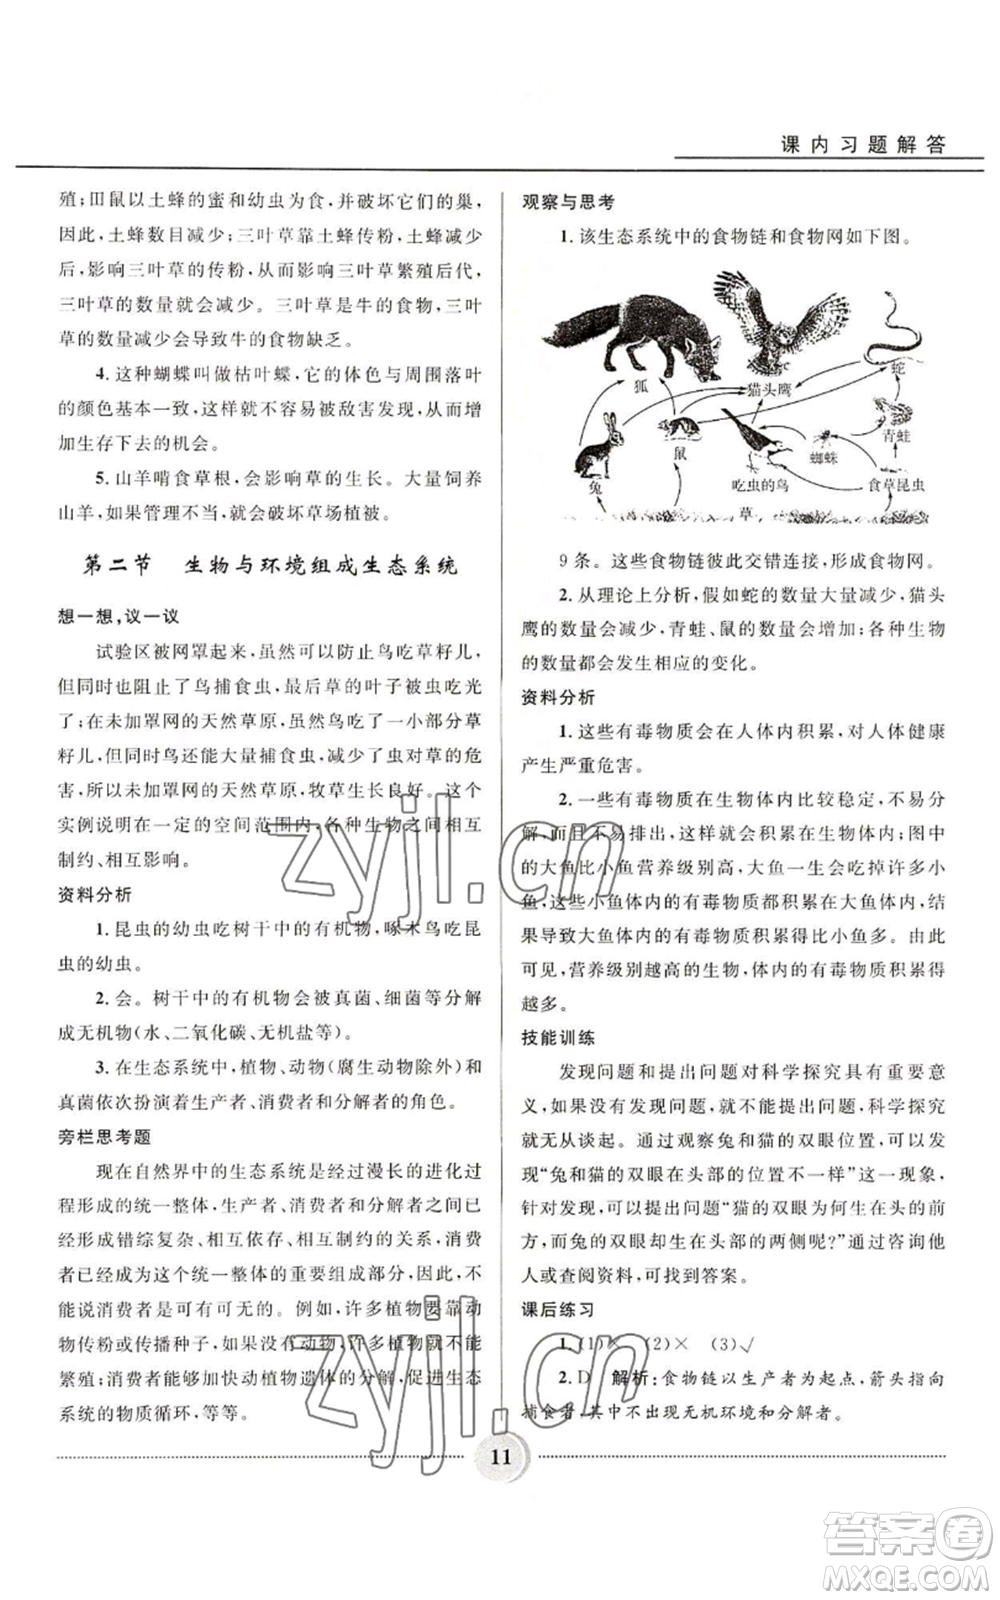 课内习题解答
殖;田鼠以土蜂的蜜和幼虫为食,并破坏它们的巢,
因此,土蜂数目减少;三叶草靠土蜂传粉,土蜂减少
后,影响三叶草的传粉,从而影响三叶草繁殖后代,
三叶草的数量就会减少。三叶草是牛的食物,三叶
草的数量减少会导致牛的食物缺乏。
4. 这种蝴蝶叫做枯叶蝶,它的体色与周围落叶
的颜色基本一致,这样就不容易被敌害发现,从而增
加生存下去的机会。
5. 山羊啃食草根,会影响草的生长。大量饲养
山羊,如果管理不当,就会破坏草场植被。
第二节 生物与环境组成生态系统
想一想,议一议
试验区被网罩起来,虽然可以防止鸟吃草籽儿,
但同时也阻止了鸟捕食虫,最后草的叶子被虫吃光
了;在未加罩网的天然草原,虽然鸟吃了一小部分草
籽儿,但同时鸟还能大量捕食虫,减少了虫对草的危
害,因此未加罩网的天然草原,牧草生长良好。这个
实例说明在一定的空间范围内,各种生物之间相互
制约、相互影响。
资料分析
1. 昆虫的幼虫吃树干中的有机物,啄木鸟吃昆
虫的幼虫。
2. 会。树干中的有机物会被真菌、细菌等分解
成无机物(水、二氧化碳、无机盐等)。
3. 在生态系统中,植物、动物(腐生动物除外)和
真菌依次扮演着生产者、消费者和分解者的角色。
旁栏思考题
现在自然界中的生态系统是经过漫长的进化过
程形成的统一整体,生产者、消费者和分解者之间已
经形成错综复杂、相互依存、相互制约的关系,消费
者已经成为这个统一整体的重要组成成分,因此,不
能说消费者是可有可无的。例如,许多植物要靠动
物传粉或传播种子,如果没有动物,许多植物就不能
繁殖;消费者能够加快动植物遗体的分解,促进生态
系统的物质循环,等等。
观察与思考
1. 该生态系统中的食物链和食物网如下图。
狐
猫头鹰
蛇
兔
鼠
吃虫的鸟
蜘蛛
青蛙
食草昆虫
草
9 条。这些食物链彼此交错连接,形成食物网。
2. 从理论上分析,假如蛇的数量大量减少,猫头
鹰的数量会减少,青蛙、鼠的数量会增加;各种生物
的数量都会发生相应的变化。
资料分析
1. 这些有毒物质会在人体内积累,对人体健康
产生严重危害。
2. 一些有毒物质在生物体内比较稳定,不易分
解,而且不易排出,这样就会积累在生物体内;图中
的大鱼比小鱼营养级别高,大鱼一生会吃掉许多小
鱼,这些小鱼体内的有毒物质全部进入大鱼体内,
结果导致大鱼体内的有毒物质积累得比小鱼多。由此
可见,营养级别越高的生物,体内的有毒物质积累得
越多。
技能训练
发现问题和提出问题对科学探究具有重要意
义,如果没有发现问题,就不能提出问题,科学探究
就无从谈起。通过观察兔和猫的双眼位置,可以发
现“兔和猫的双眼在头部的位置不一样”这一现象,
针对此现象可以提出问题“猫的双眼为何生在头的前
方,而兔的双眼却生在头部的两侧呢?”通过咨询他
人或查阅资料,可找到答案。
课后练习
1. (1)× (2)× (3)√
2. D 解析:食物链以生产者为起点,箭头指向
捕食者,其中不出现无机环境和分解者。
11
zyjl.cn
zyjl.cn
答案圈
MXQE.COM